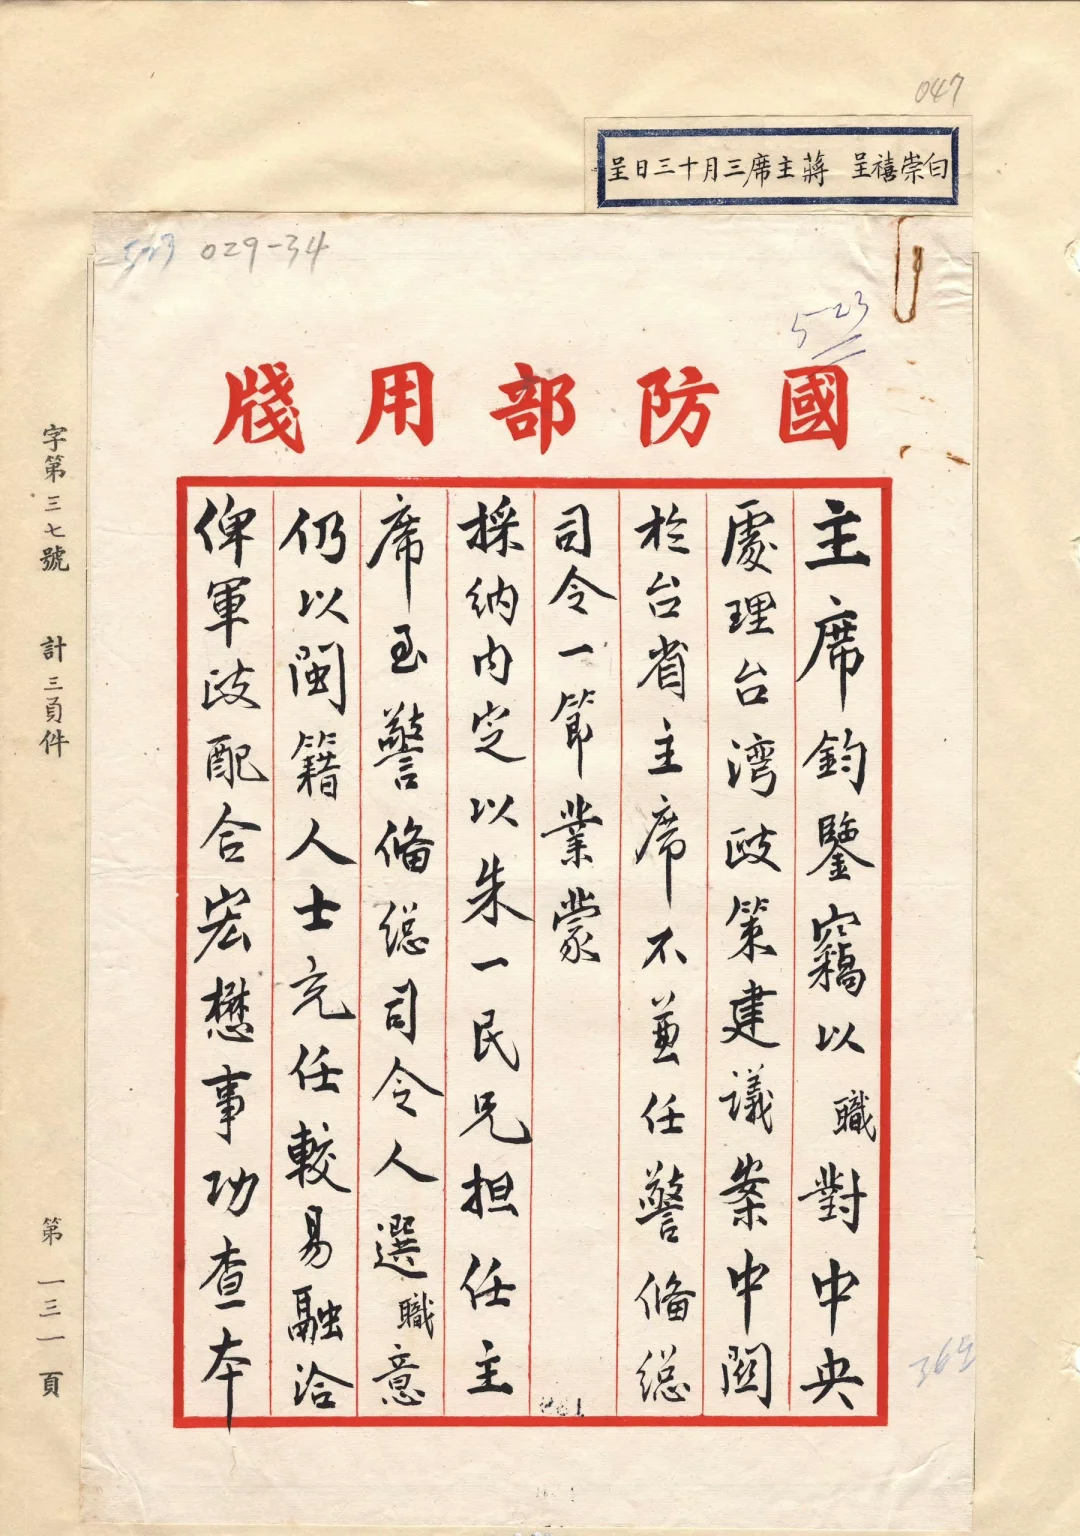 047
白崇禧呈　蔣主席三月十三日呈
523 029-34
523
國防部用牋
主席鈞鑒竊以職對中央
處理台灣政策建議案中關
於台省主席不兼任警備總
司令一節業蒙
採納內定以朱一民兄担任主
席至警備總司令人選職意
仍以閩籍人士充任較易融洽
俾軍政配合宏懋事功查本
字第三七號　計三頁件　第一三一頁